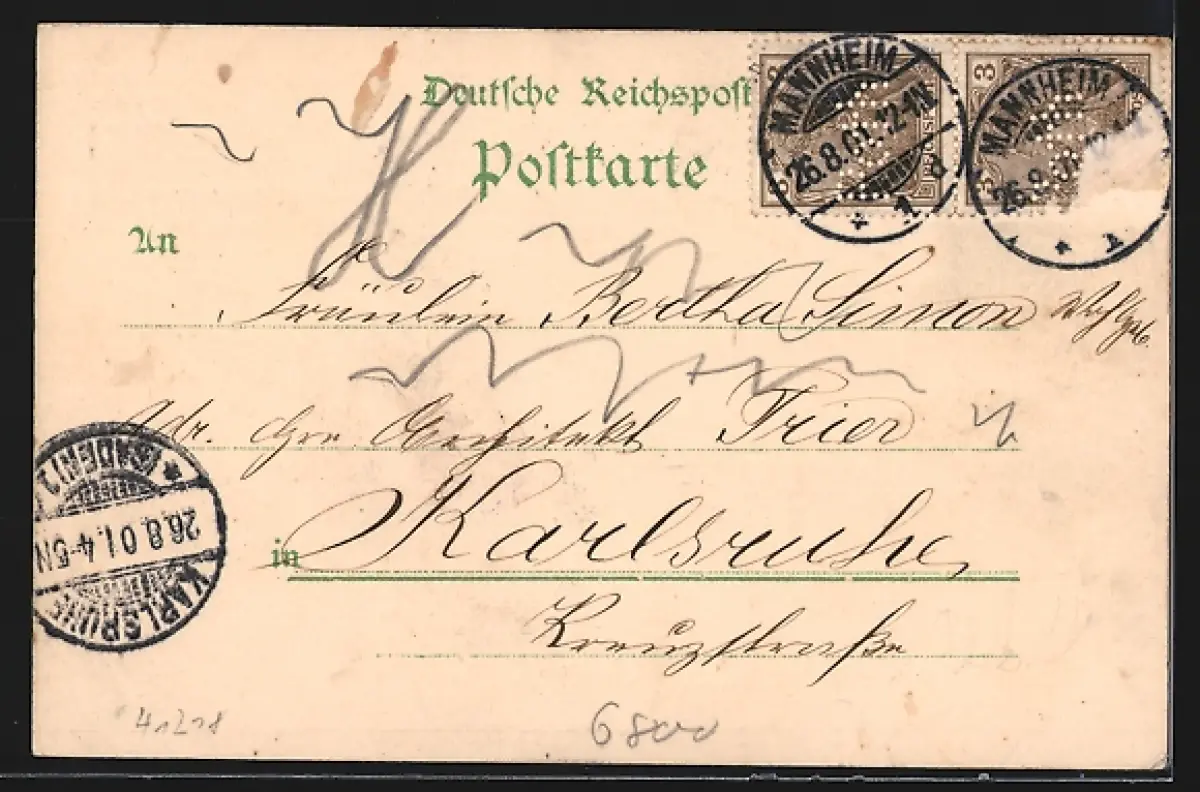 Deutsche Reichspost
Postkarte
3 3
MANNHEIM
26.8.01.12-1N.
* 1 d
MANNHEIM
26.8.01
An
Fräulein Bertha Simon
Adr. Architekt Trier
in Karlsruhe
Kreuzstraße
KARLSRUHE
26.8.01.4-5N
* (BADEN) 1
41218
6800